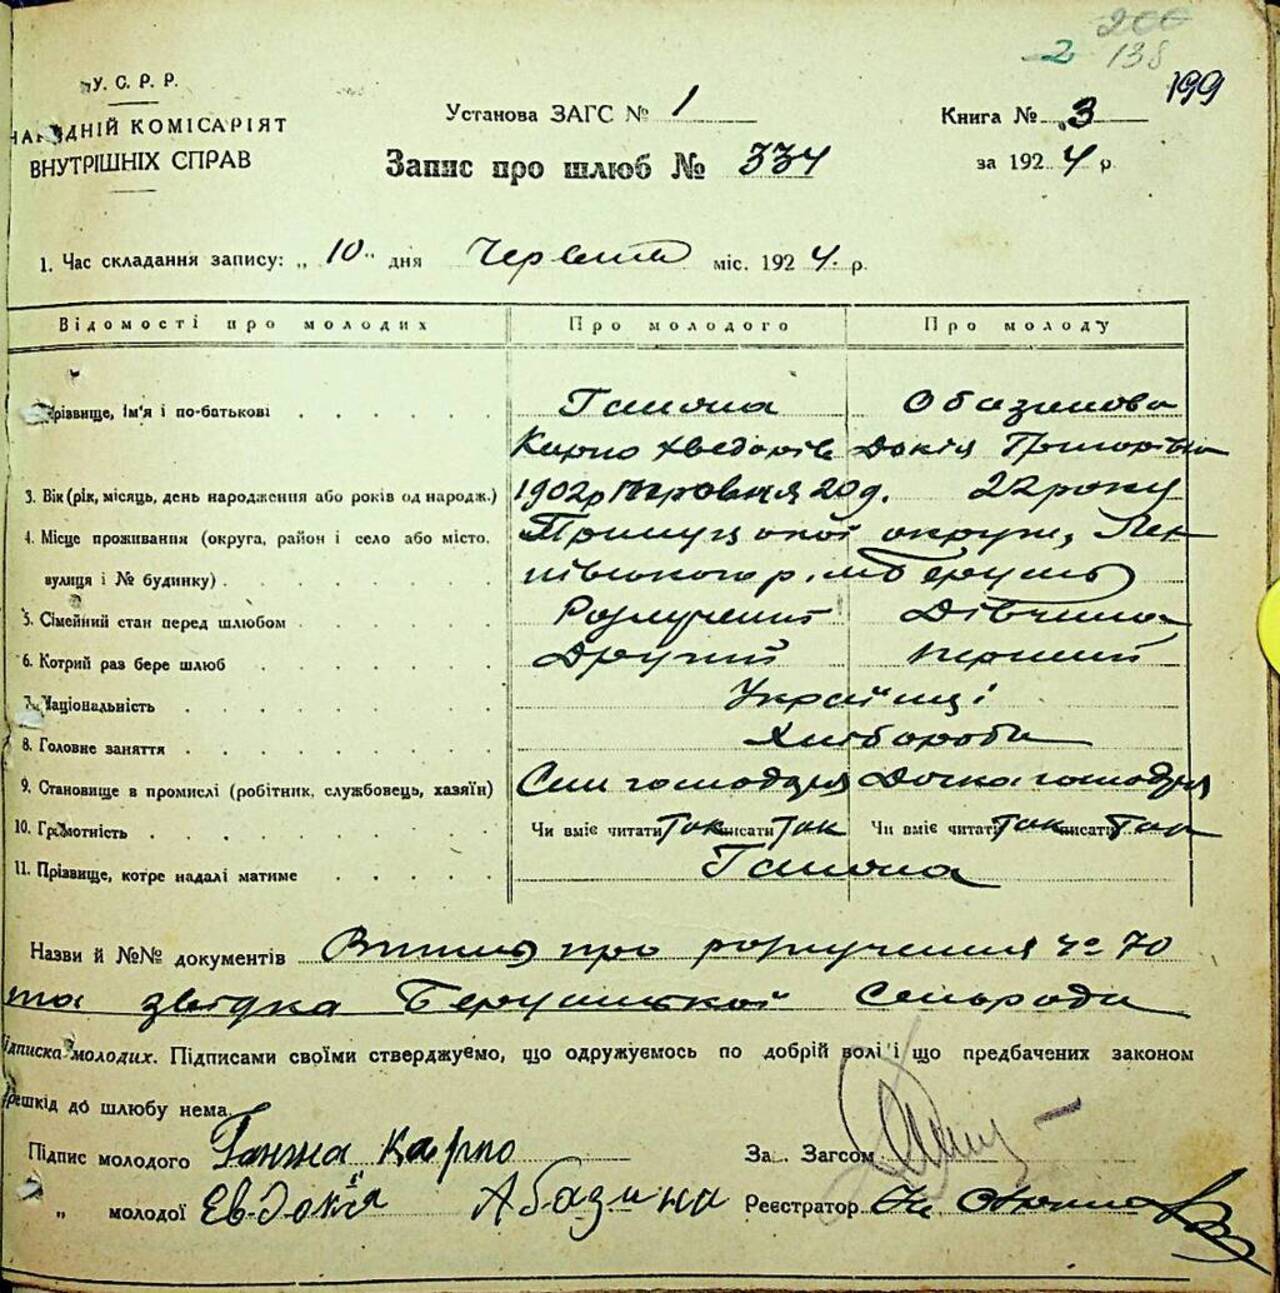 200
2 138
199
У. С. Р. Р.
НАРОДНІЙ КОМІСАРІЯТ
ВНУТРІШНІХ СПРАВ
Установа ЗАГС № 1
Книга № 3
Запис про шлюб № 334
за 1924 р.
1. Час складання запису: „10" дня Червня міс. 1924 р.
Відомості про молодих Про молодого Про молоду
Прізвище, ім'я і по-батькові Ганжа Обазинова
Карпо Хведорів Докія Григорівна
3. Вік (рік, місяць, день народження або років од народж.) 1902 р 20 д. 22 року
4. Місце проживання (округа, район і село або місто, Прилуцької округи,
вулиця і № будинку)
5. Сімейний стан перед шлюбом Розлучений Дівчина
6. Котрий раз бере шлюб Другий перший
7. Національність Українці
8. Головне заняття Хлібороби
9. Становище в промислі (робітник, службовець, хазяїн) Син господаря Дочка господаря
10. Грамотність Чи вміє читати так писати так Чи вміє читати так писати так
11. Прізвище, котре надалі матиме Ганжа
Назви й №№ документів Витяг про розлучення № 70
та звідка Сельради
Підписка молодих. Підписами своїми стверджуємо, що одружуємось по добрій волі і що предбачених законом
перешкід до шлюбу нема.
Підпис молодого Ганжа Карпо За. Загсом
„ молодої Евдокія Абазина Реєстратор